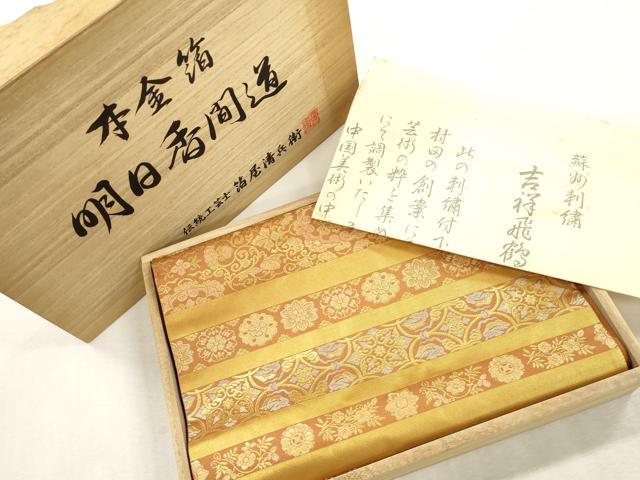 本金箔
明日香間道
伝統工芸士 箔屋清兵衛
蘇州刺繍
吉祥飛鶴
此の刺繍付下
村田の創案に
芸術の粋と集め
にて調製いたし
中国美術の中